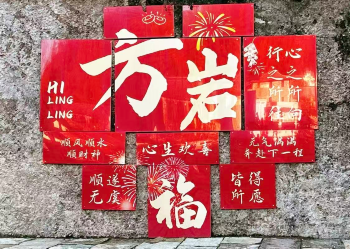 方岩
HI
LING
LING
心之所向
行之所往
顺风顺水
顺财神
心生欢喜
元气满满
奔赴下一程
顺遂
无虞
福
皆得
所愿